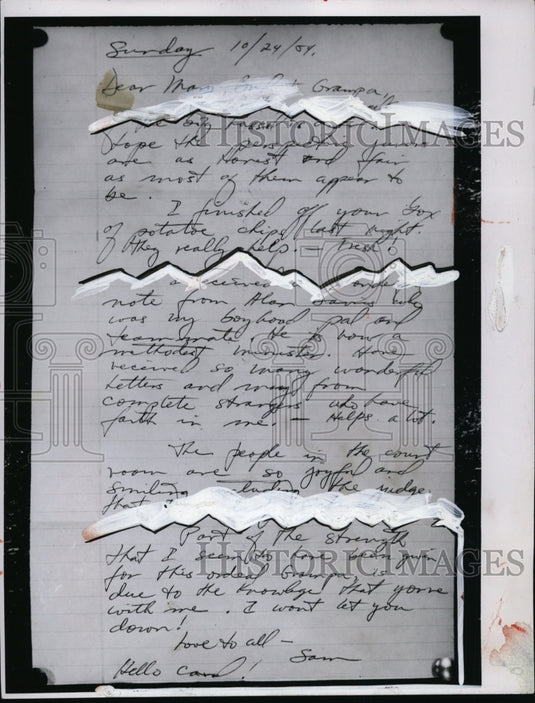 Sunday 10/24/54.
Dear Mom, Grampa,
hope the prospective jurors
are as Honest and fair
as most of them appear to
be.
I finished off your box
of potatoe chips last night.
They really help. — Fresh!
received
note from Alan Davis who
was my boyhood pal and
teammate. He is now a
methodist minister. Have
received so many wonderful
letters and many from
complete strangers who have
faith in me. — Helps a lot.
The people in the court
room are so joyful and
smiling the judge
that
Part of the strength
that I seem to have been given
for this ordeal Grampa, is
due to the knowledge that you're
with me. I wont let you
down!
Love to all —
Sam
Hello Carol!
HISTORIC IMAGES
HISTORIC IMAGES